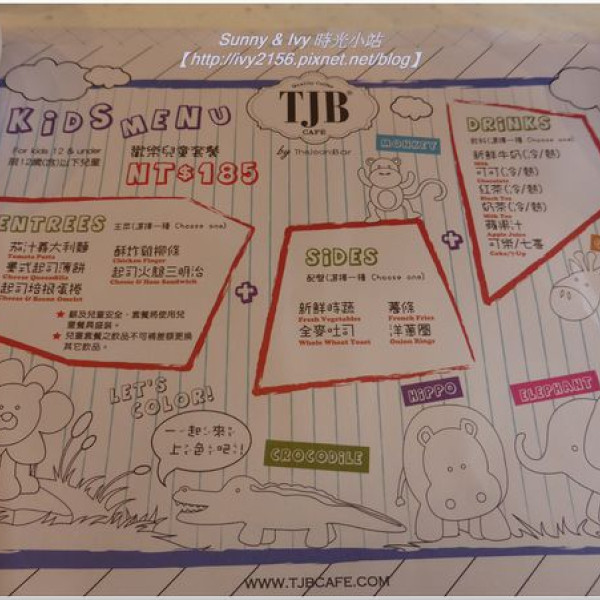 Sunny & Ivy 時光小站
【http://ivy2156.pixnet.net/blog】
KiDS MENU
For kids 12 & under
限12歲(含)以下兒童
歡樂兒童套餐
NT$185
Quality Coffee
TJB
CAFE
by TheJeanBar
MONKEY
DRiNKS
飲料(選擇一種 Choose one)
新鮮牛奶(冷/熱)
Milk
可可(冷/熱)
Chocolate
紅茶(冷/熱)
Black Tea
奶茶(冷/熱)
Milk Tea
蘋果汁
Apple Juice
可樂/七喜
Coke/7-Up
ENTREES
主菜(選擇一種 Choose one)
茄汁義大利麵
Tomato Pasta
墨式起司薄餅
Cheese Quesadilla
起司培根蛋捲
Cheese & Bacon Omelet
酥炸雞柳條
Chicken Finger
起司火腿三明治
Cheese & Ham Sandwich
★ 顧及兒童安全，套餐將使用兒
童餐具盛裝。
★ 兒童套餐之飲品不可補差額更換
其它飲品。
+
SiDES
配餐(選擇一種 Choose one)
新鮮時蔬
Fresh Vegetables
全麥吐司
Whole Wheat Toast
薯條
French Fries
洋蔥圈
Onion Rings
+
LET'S
COLOR!
一起來
上色吧!
CROCODiLE
HiPPO
ELEPHANT
WWW.TJBCAFE.COM